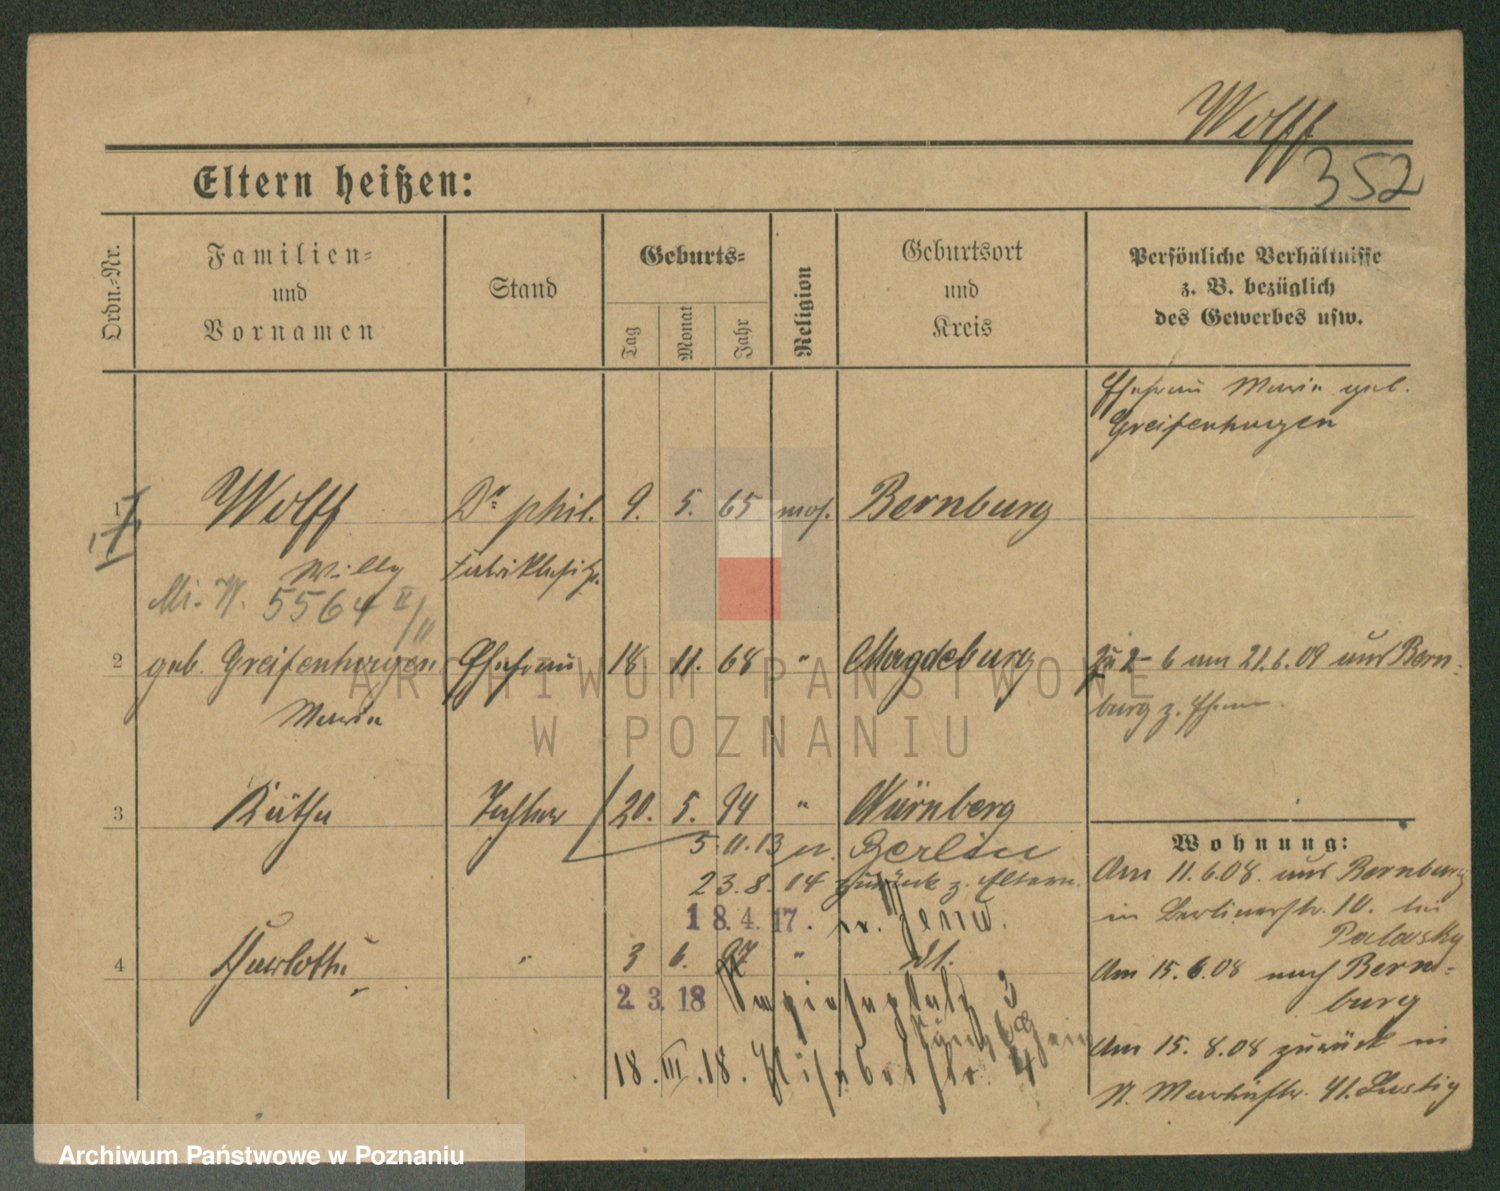 Wolff
352
Eltern heißen:
Ordn.-Nr.
Familien-
und
Vornamen
Stand
Geburts-
Tag
Monat
Jahr
Religion
Geburtsort
und
Kreis
Persönliche Verhältnisse
z. B. bezüglich
des Gewerbes usw.
Ehefrau Marie geb.
Greifenhagen
1 Wolff Dr phil. 9. 5. 65 mos. Bernburg
Willy Fabrikbesitz.
5564 II/11
2 geb. Greifenhagen Ehefrau 18 11. 68 " Magdeburg 6 am 21.6.09 aus Bern-
Marie burg z. Ehem
3 Käthe Tochter 20. 5. 94 " Nürnberg
5.11.13 n. Berlin
23.8.14 zurück z. Eltern.
18.4.17. n. Jena.
4 Charlotte " 3 6. 97 " dt.
2.3.18 3
18.III.18. 4
Wohnung:
Am 11.6.08. aus Bernburg
in Berlinerstr. 10. bei
Am 15.6.08 nach Bern-
burg
Am 15.8.08 zurück in
St. Martinstr. 41.
ARCHIWUM PAŃSTWOWE
W POZNANIU
Archiwum Państwowe w Poznaniu